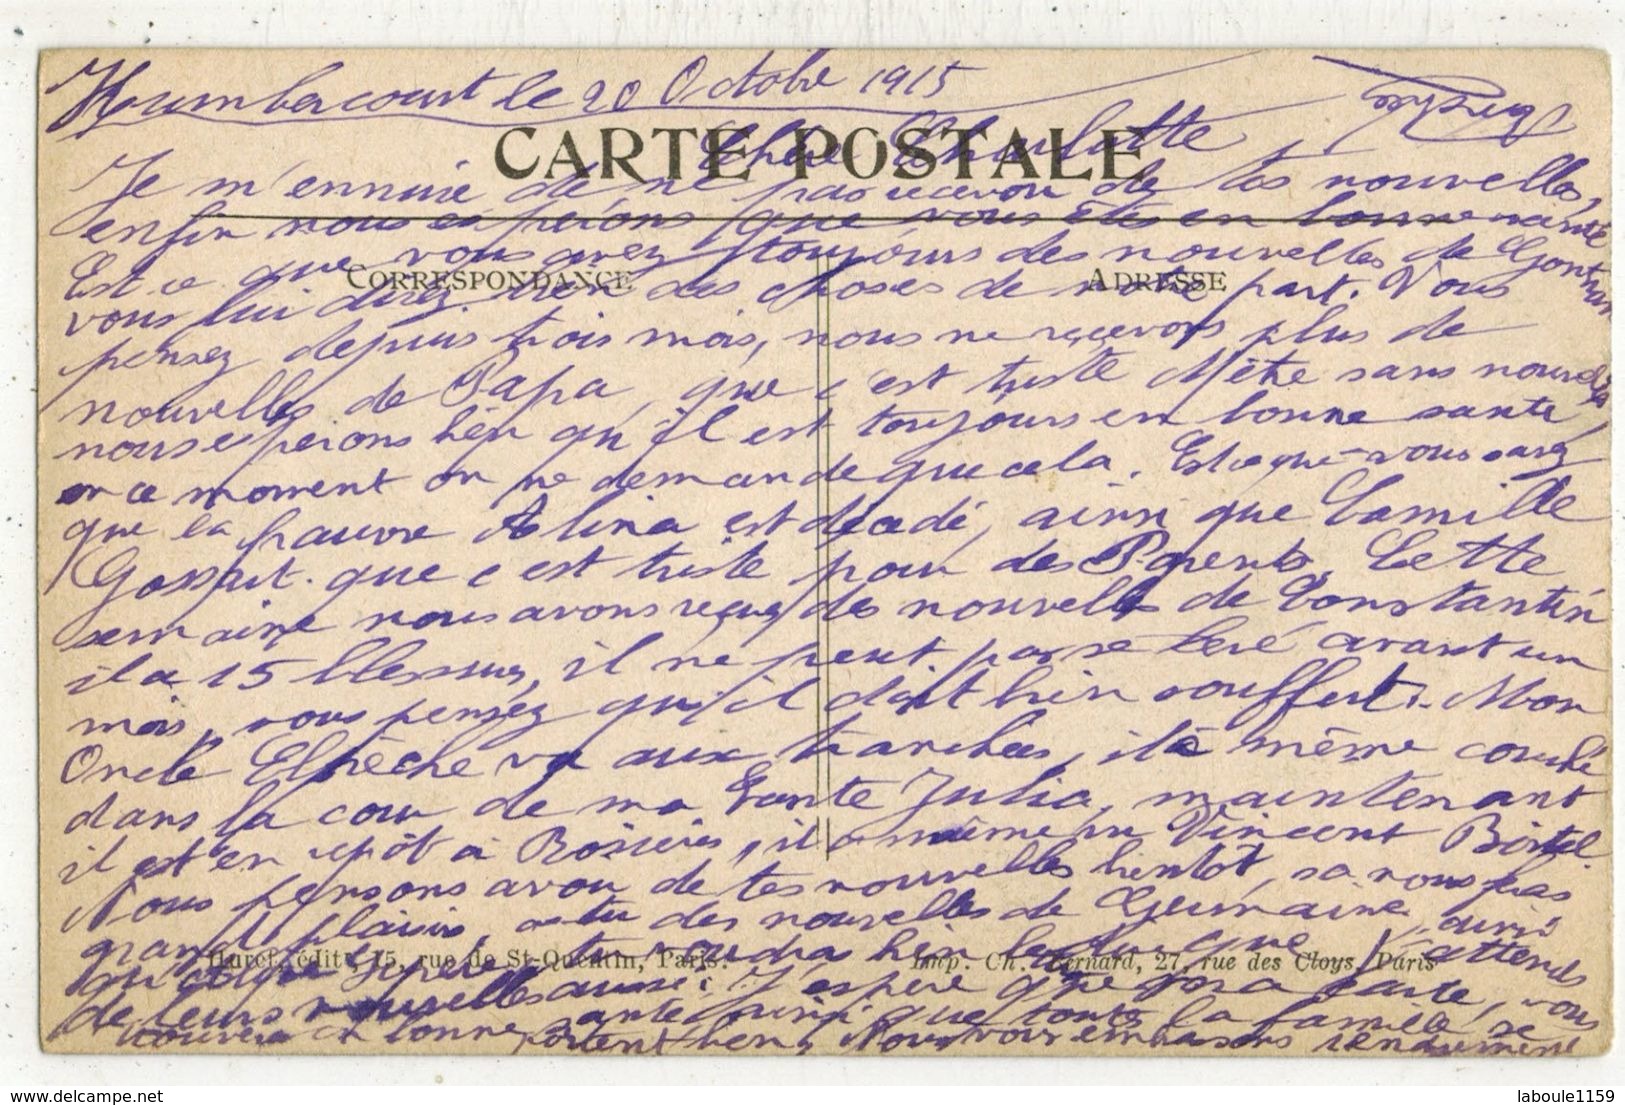 Humbercourt le 20 Octobre 1915
CARTE POSTALE
Chère Charlotte
Je m'ennuie de ne pas recevoir de tes nouvelles,
enfin nous espérons que vous êtes en bonne santé
Est ce que vous avez toujours des nouvelles de Gontran
CORRESPONDANCE
ADRESSE
vous lui direz bien des choses de notre part. Vous
pensez depuis trois mois, nous ne reçevons plus de
nouvelles de Papa, que c'est triste d'être sans nouvelles
nous esperions bien qu'il est toujours en bonne santé,
en ce moment on ne demande que cela. Est ce que vous savez
que la pauvre Alina est décédé, ainsi que Camille
que c'est triste pour des Parents. Cette
semaine nous avons reçus des nouvelles de Constantin
il a 15 blessures, il ne peut pas se levé avant un
mois, vous pensez qu'il doit bien souffert. Mon
Oncle Elpèche va aux tranchées, il a même couché
dans la cour de ma Tante Julia, maintenant
il est en repôt à Rosières, il a même vu Vincent
Nous pensons avoir de tes nouvelles bientôt, sa nous fera
grand plaisir, as tu des nouvelles de Germaine, ainsi
Huret, édit., 15, rue de St-Quentin, Paris.
Imp. Ch. Bernard, 27, rue des Cloys, Paris
tu voudras bien que j'attends
de leurs nouvelles aussi. J'espère que ma carte, vous
trouvera en bonne santé ainsi que toute la famille se
portent bien. Nous voir embrassons tendrement